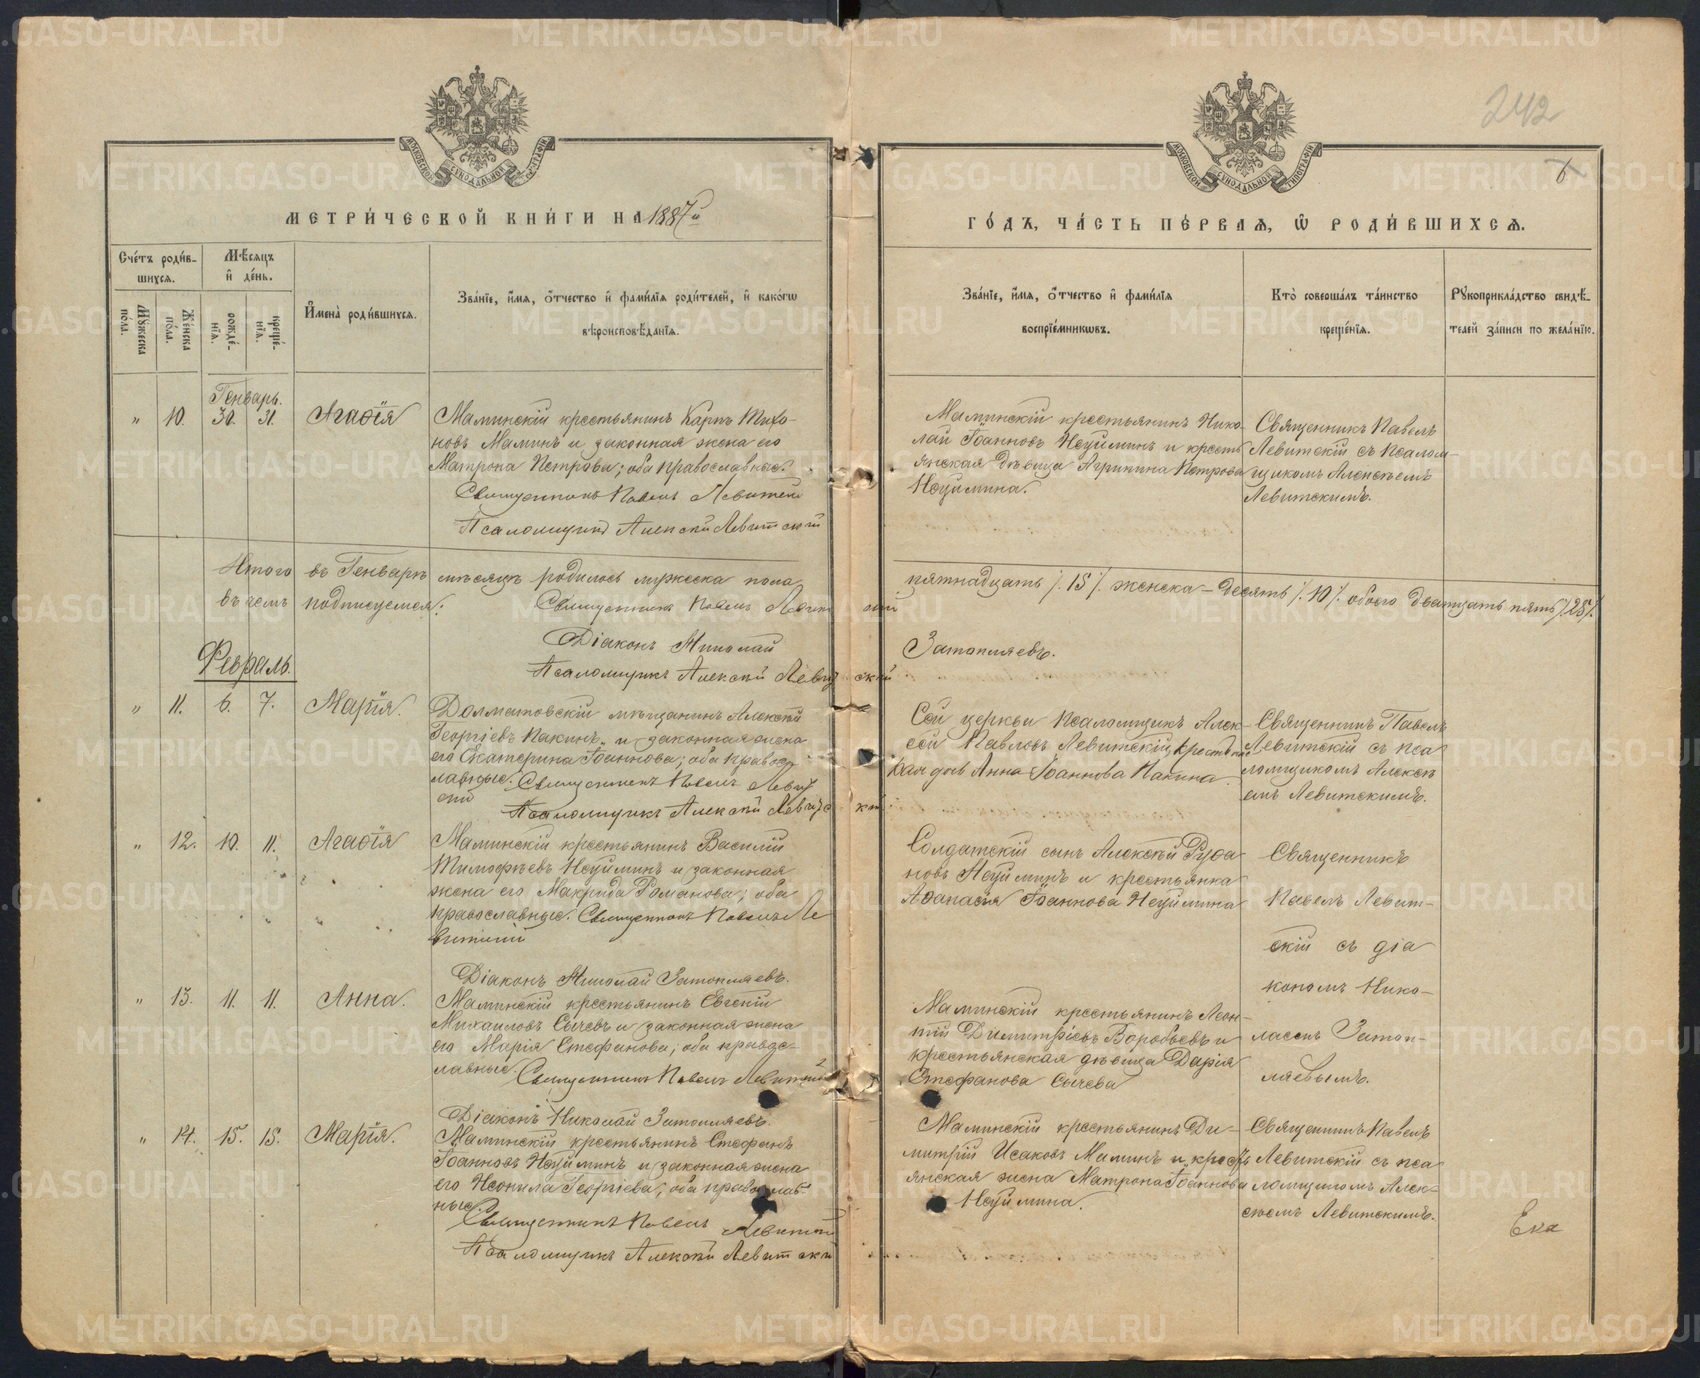 МЕТРИ́ЧЕСКОЙ КНИ́ГИ НА 1887й
ГО́ДЪ, ЧА́СТЬ ПЕ́РВАѦ, Ѡ҆ РОДИ́ВШИХСѦ.
242
Сче́тъ роди́в-
шихсѧ.
Мѣ́сѧцъ
и҆ де́нь.
И҆мена̀ роди́вшихсѧ.
Зва́нїе, и҆́мѧ, ѻ҆́тчество и҆ фами́лїѧ роди́телей, и҆ како́гѡ
вѣроисповѣ́данїѧ.
Зва́нїе, и҆́мѧ, ѻ҆́тчество и҆ фами́лїѧ
воспрїе́мникѡвъ.
Кто̀ соверша́лъ та́инство
креще́нїѧ.
Рꙋкоприкла́дство свидѣ́-
телей за́писи по жела́нїю.
Мꙋ́жеска
по́ла.
Же́нска
по́ла.
рожде́-
нїѧ.
креще́-
нїѧ.
Генварь.
" 10. 30. 31. Агаѳія
Маминскій крестьянинъ Карпъ Тихо-
новъ Маминъ и законная жена его
Матрона Петрова; оба православные.
Священникъ Павелъ Левитскій
Псаломщикъ Алексій Левитскій
Маминскій крестьянинъ Нико-
лай Іоанновъ Неуйминъ и кресть
янская дѣвица Агрипина Петрова
Неуймина.
Священникъ Павелъ
Левитскій съ псалом-
щикомъ Алексѣемъ
Левитскимъ.
Итого въ Генварѣ мѣсяцѣ родилось мужеска пола
пятнадцать /15/. женска – десять /10/. обоего двадцать пять /25/.
въ чемъ подписуемся:
Священникъ Павелъ Левитскій
Діаконъ Николай Затопляевъ.
Псаломщикъ Алексій Левитскій
Февраль.
" 11. 6. 7. Марія.
Долматовскій мѣщанинъ Алексѣй
Георгіевъ Пакинъ и законная жена
его Екатерина Іоаннова; оба правос
лавные. Священникъ Павелъ Левит
скій
Псаломщикъ Алексій Левитскій
Сей церкви псаломщикъ Алек-
сѣй Павловъ Левитскій крестьян
кая дѣв Анна Іоаннова Пакина.
Священникъ Павелъ
Левитскій съ пса
ломщикомъ Алексѣ
емъ Левитскимъ.
" 12. 10. 11. Агаѳія
Маминскій крестьянинъ Василій
Тимофѣевъ Неуйминъ и законная
жена его Макрида Романова; оба
православные. Священникъ Павелъ Ле
витскій
Діаконъ Николай Затопляевъ.
Солдатскій сынъ Алексѣй
новъ Неуйминъ и крестьянка
Аѳанасія Іоаннова Неуймина
Священникъ
Павелъ Левит-
скій съ діа
кономъ Нико-
лаемъ Затоп-
ляевымъ.
" 13. 11. 11. Анна.
Маминскій крестьянинъ Евгеній
Михаиловъ Сычевъ и законная жена
его Марія Стефанова; оба правос-
лавные.
Священникъ Павелъ Левитскій
Діаконъ Николай Затопляевъ.
Маминскій крестьянинъ Леон-
тій Димитріевъ Воробьевъ и
крестьянская дѣвица Дарія
Стефанова Сычева
" 14. 15. 15. Марія.
Маминскій крестьянинъ Стефанъ
Іоанновъ Неуйминъ и законная жена
его Неонила Георгіева; оба православ-
ные.
Священникъ Павелъ Левитскій
Псаломщикъ Алексій Левитскій
Маминскій крестьянинъ Ди-
митрій Исаковъ Маминъ и кресть
янская жена Матрона Іоаннова
Неуймина.
Священникъ Павелъ
Левитскій съ пса
ломщикомъ Алек-
сѣемъ Левитскимъ.
METRIKI.GASO-URAL.RU